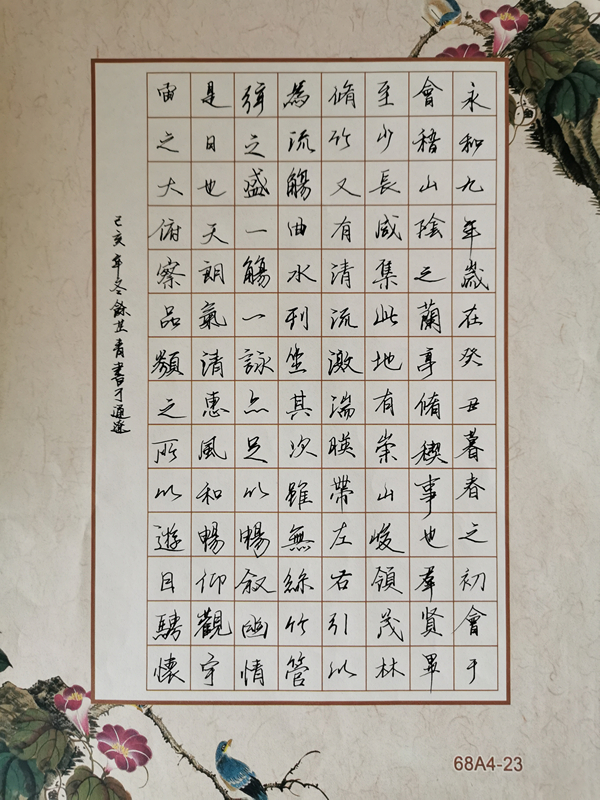 永和九年歲在癸丑暮春之初會于
會稽山陰之蘭亭脩稧事也羣賢畢
至少長咸集此地有崇山峻領茂林
脩竹又有清流激湍暎帶左右引以
為流觴曲水列坐其次雖無絲竹管
弦之盛一觴一詠亦足以暢叙幽情
是日也天朗氣清惠風和暢仰觀宇
宙之大俯察品類之所以遊目騁懷
己亥年冬青書于通遼
68A4-23